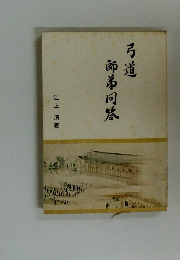 弓道
師弟問答